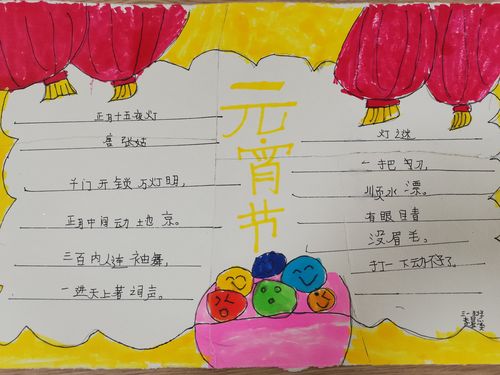 正月十五夜灯
唐 张祜
千门开锁万灯明,
正月中间动地京。
三百内人连袖舞,
一进天上著词声。
元宵节
灯谜
一把勺刀,
顺水漂。
有眼目青
没眉毛。
打一下动